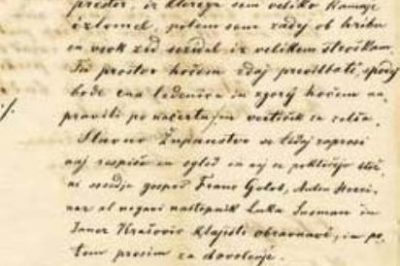 prostor, iz kterega sem veliko kamnje
izlomil, potem sem zadej ob hribu
en vsok zid sezidal iz velikem stroškam.
Ta prostor hočem zdaj preosbbati, spodej
bode ena ledenica in zgorej hočem na-
praviti po načertu en vertiček za
Slavno Županstvo se tedaj zaprosi
naj razpiše en ogled en nj se pokličejo
ni sosedje gospod Franc Golob, Anton
al negovi nastopnik Luka in
Janez Kraševic obravnavi, in po-
tem prosim za dovolenje.